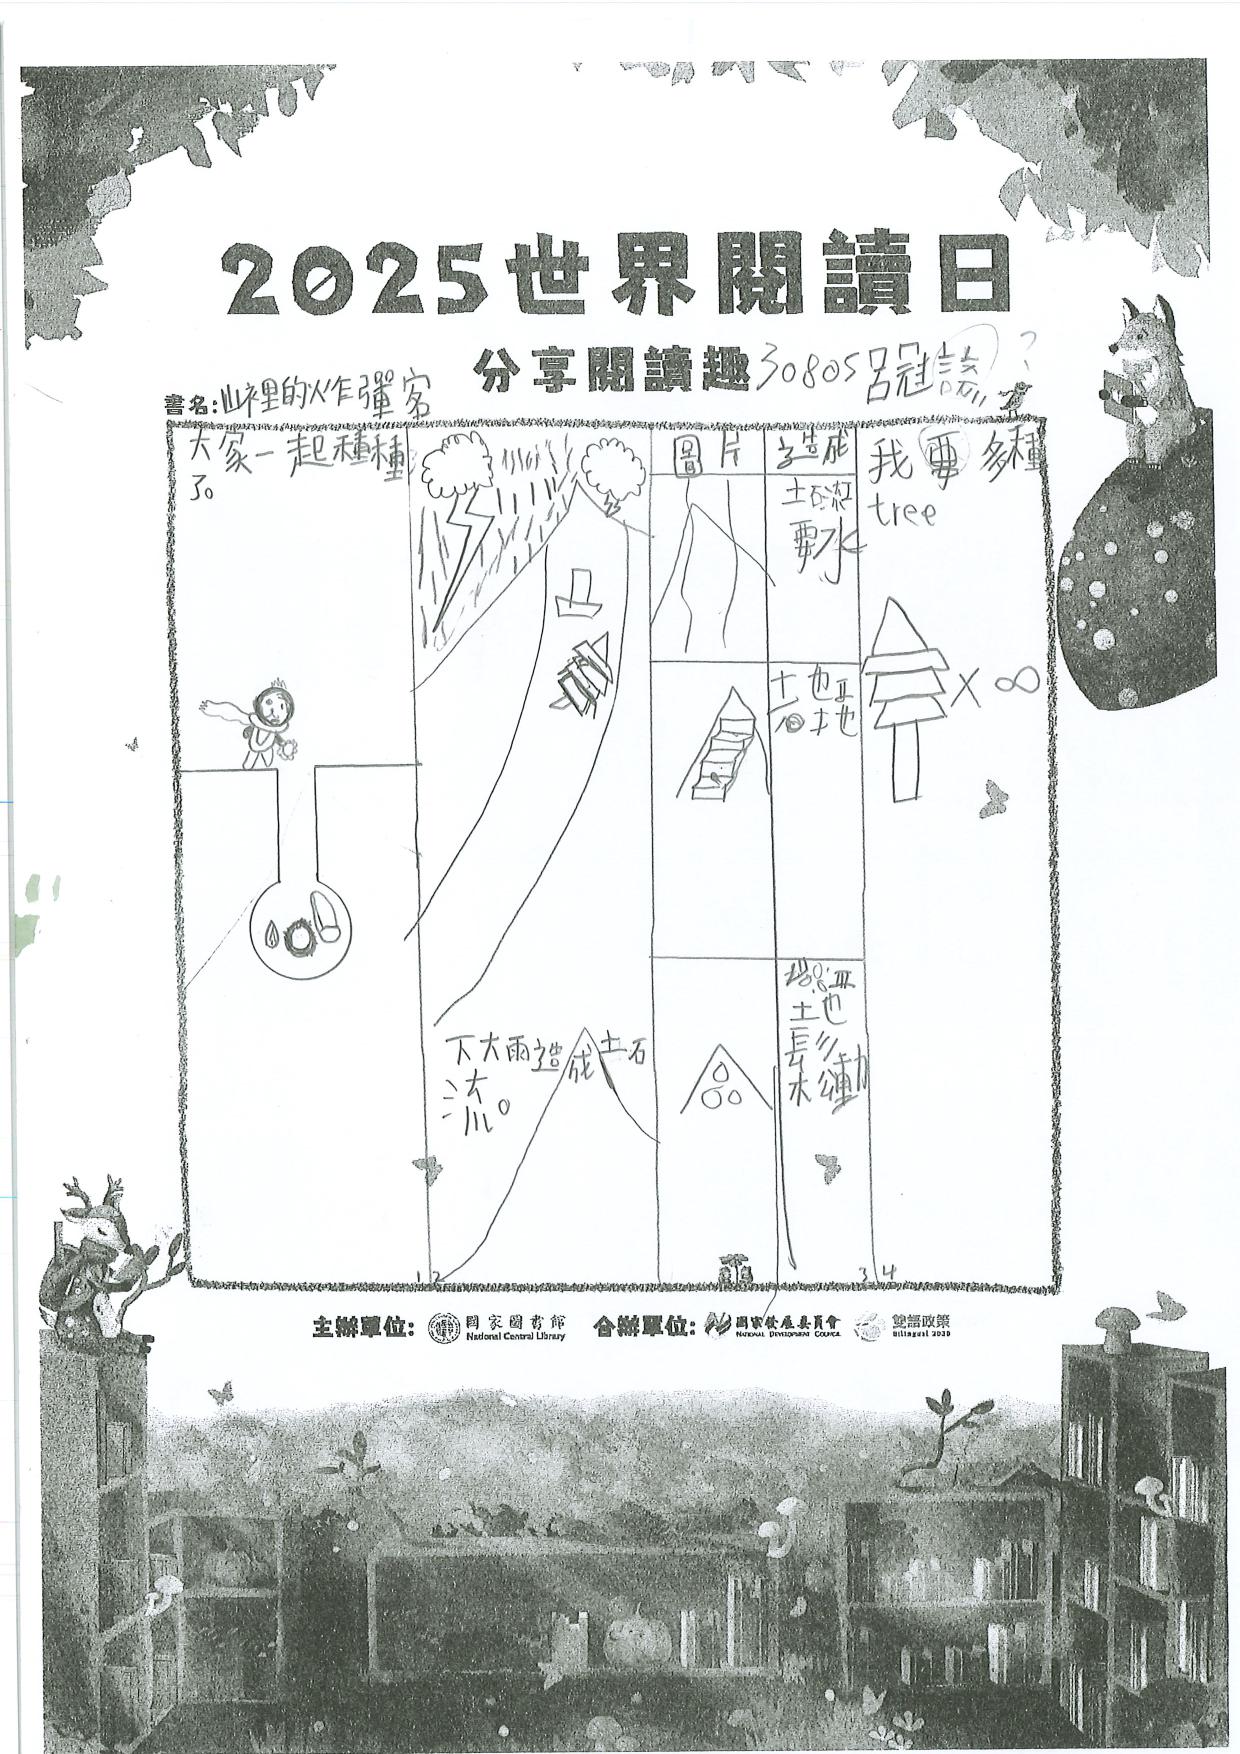 2025世界閱讀日
分享閱讀趣
30805呂冠
?
書名:山裡的炸彈客
大家一起種種
了。
下大雨造成土石
流。
圖片
造成
土石
要水
土也
石
土地
鬆動
我要多種
tree
x ∞
1 2
3 4
主辦單位: 國家圖書館 合辦單位: 國家發展委員會 雙語政策
National Central Library NATIONAL DEVELOPMENT COUNCIL Bilingual 2030